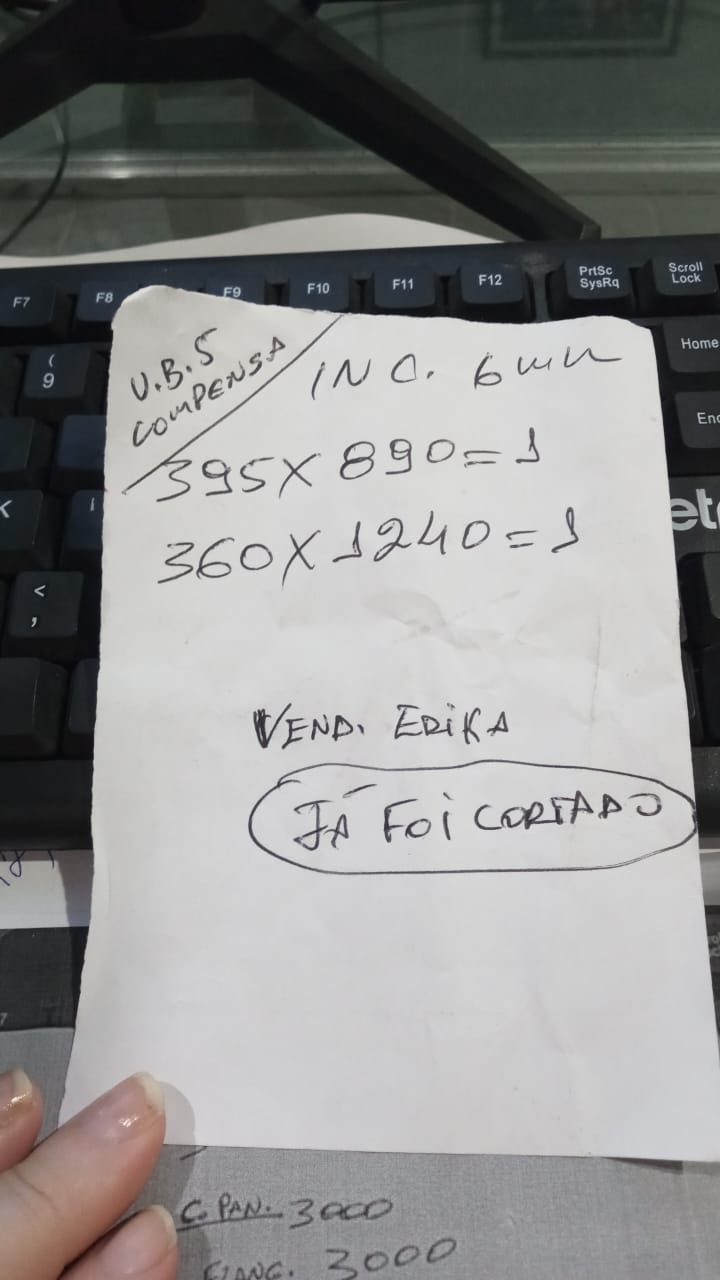 F7 F8 F9 F10 F11 F12 PrtSc SysRq Scroll Lock
( 9
Home
End
K
< ,
U.B.S
COMPENSA
INC. 6mm
395X890=1
360X1240=1
VEND. ERIKA
JÁ FOI CORTADO
C. PAN. 3000
3000